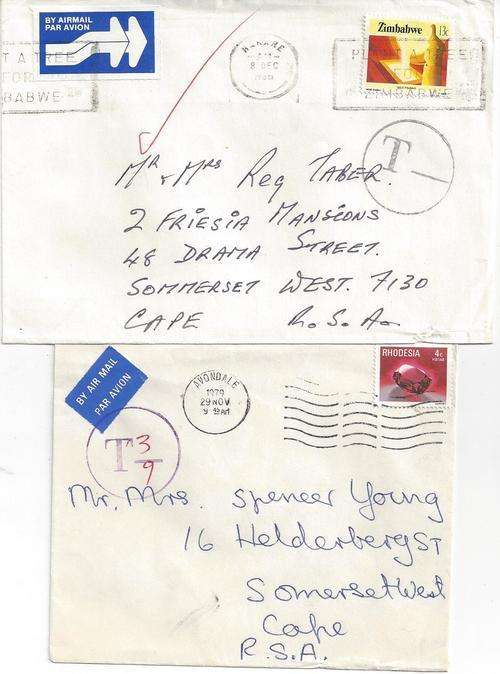 BY AIRMAIL
PAR AVION
Zimbabwe 13c
HARARE
8 DEC
T A TREE
FOR
BABWE
ZIMBABWE
T
Mr & Mrs Reg Taber.
2 Friesia Mansions
48 Drama Street.
Sommerset West. 7130
Cape R.S.A.
BY AIR MAIL
PAR AVION
AVONDALE
1979
29 NOV
9 AM
RHODESIA 4c
T 3
9
Mr. Mrs. Spencer Young
16 Helderberg St
Somerset West
Cape
R.S.A.